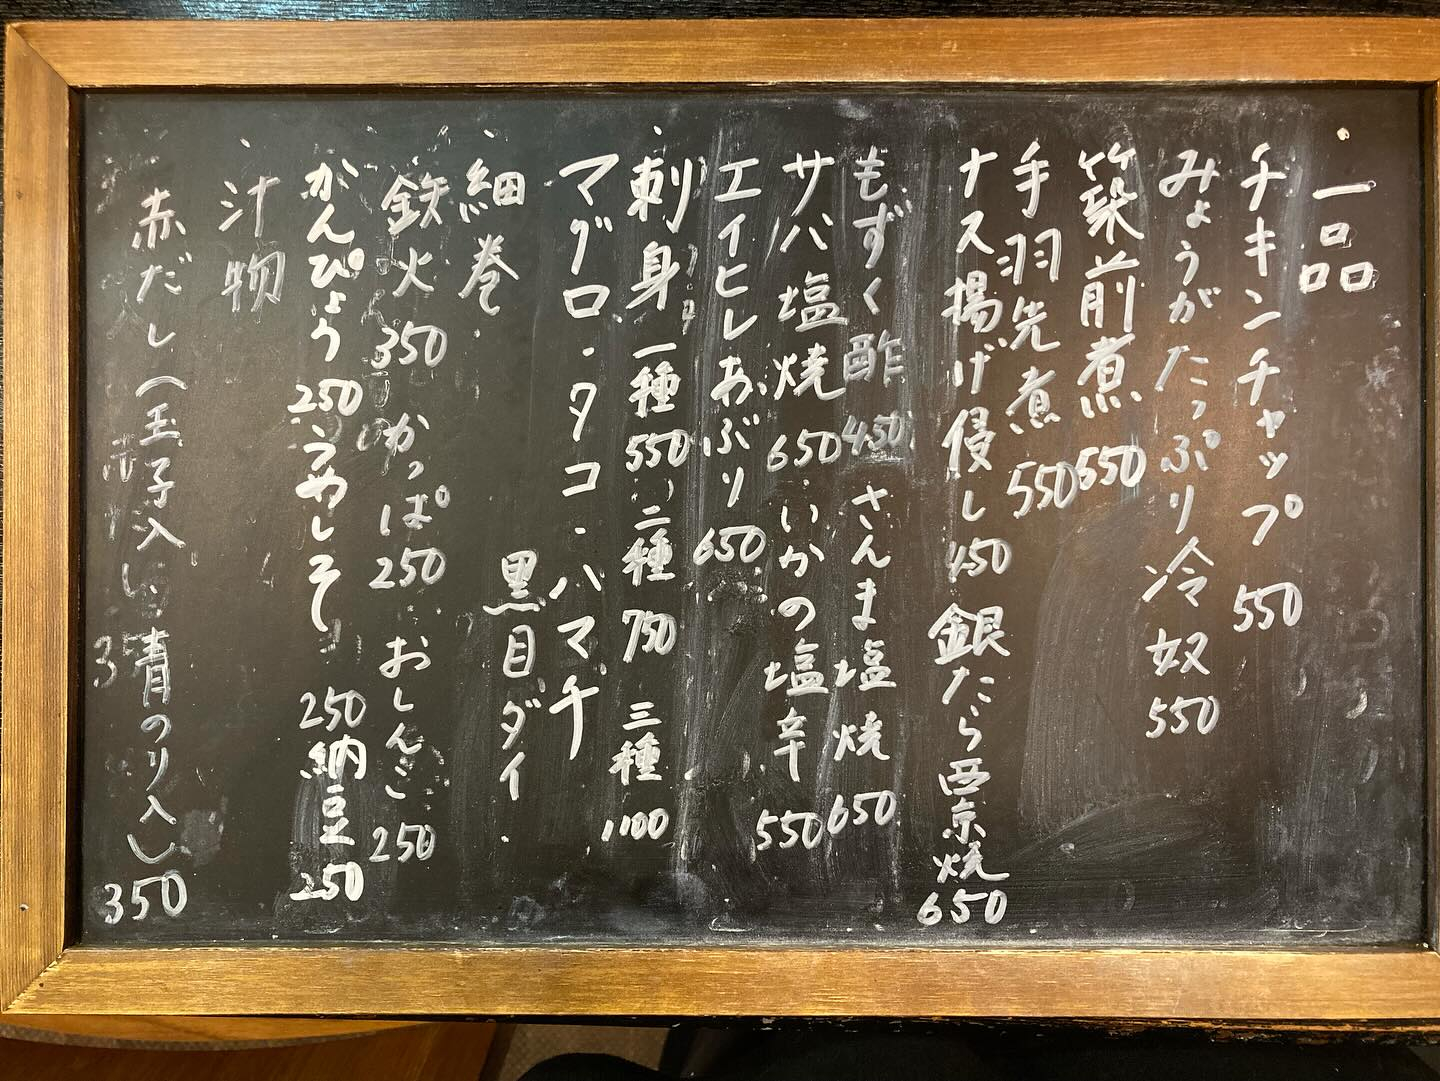 一品
チキンチャップ 550
みょうがたっぷり冷奴 550
築前煮 550
手羽先煮 550
ナス揚げ侵し 450 銀だら西京焼 650
もずく酢 450 さんま塩焼 650
サバ塩焼 650 いかの塩辛 550
エイヒレあぶり 650
刺身 一種 550 二種 750 三種 1100
マグロ・タコ・ハマチ
黒目ダイ
細巻
鉄火 350 かっぱ 250 おしんこ 250
かんぴょう 250 うめしそ 250 納豆 250
汁物
赤だし(玉子入い 青のり入し) 350